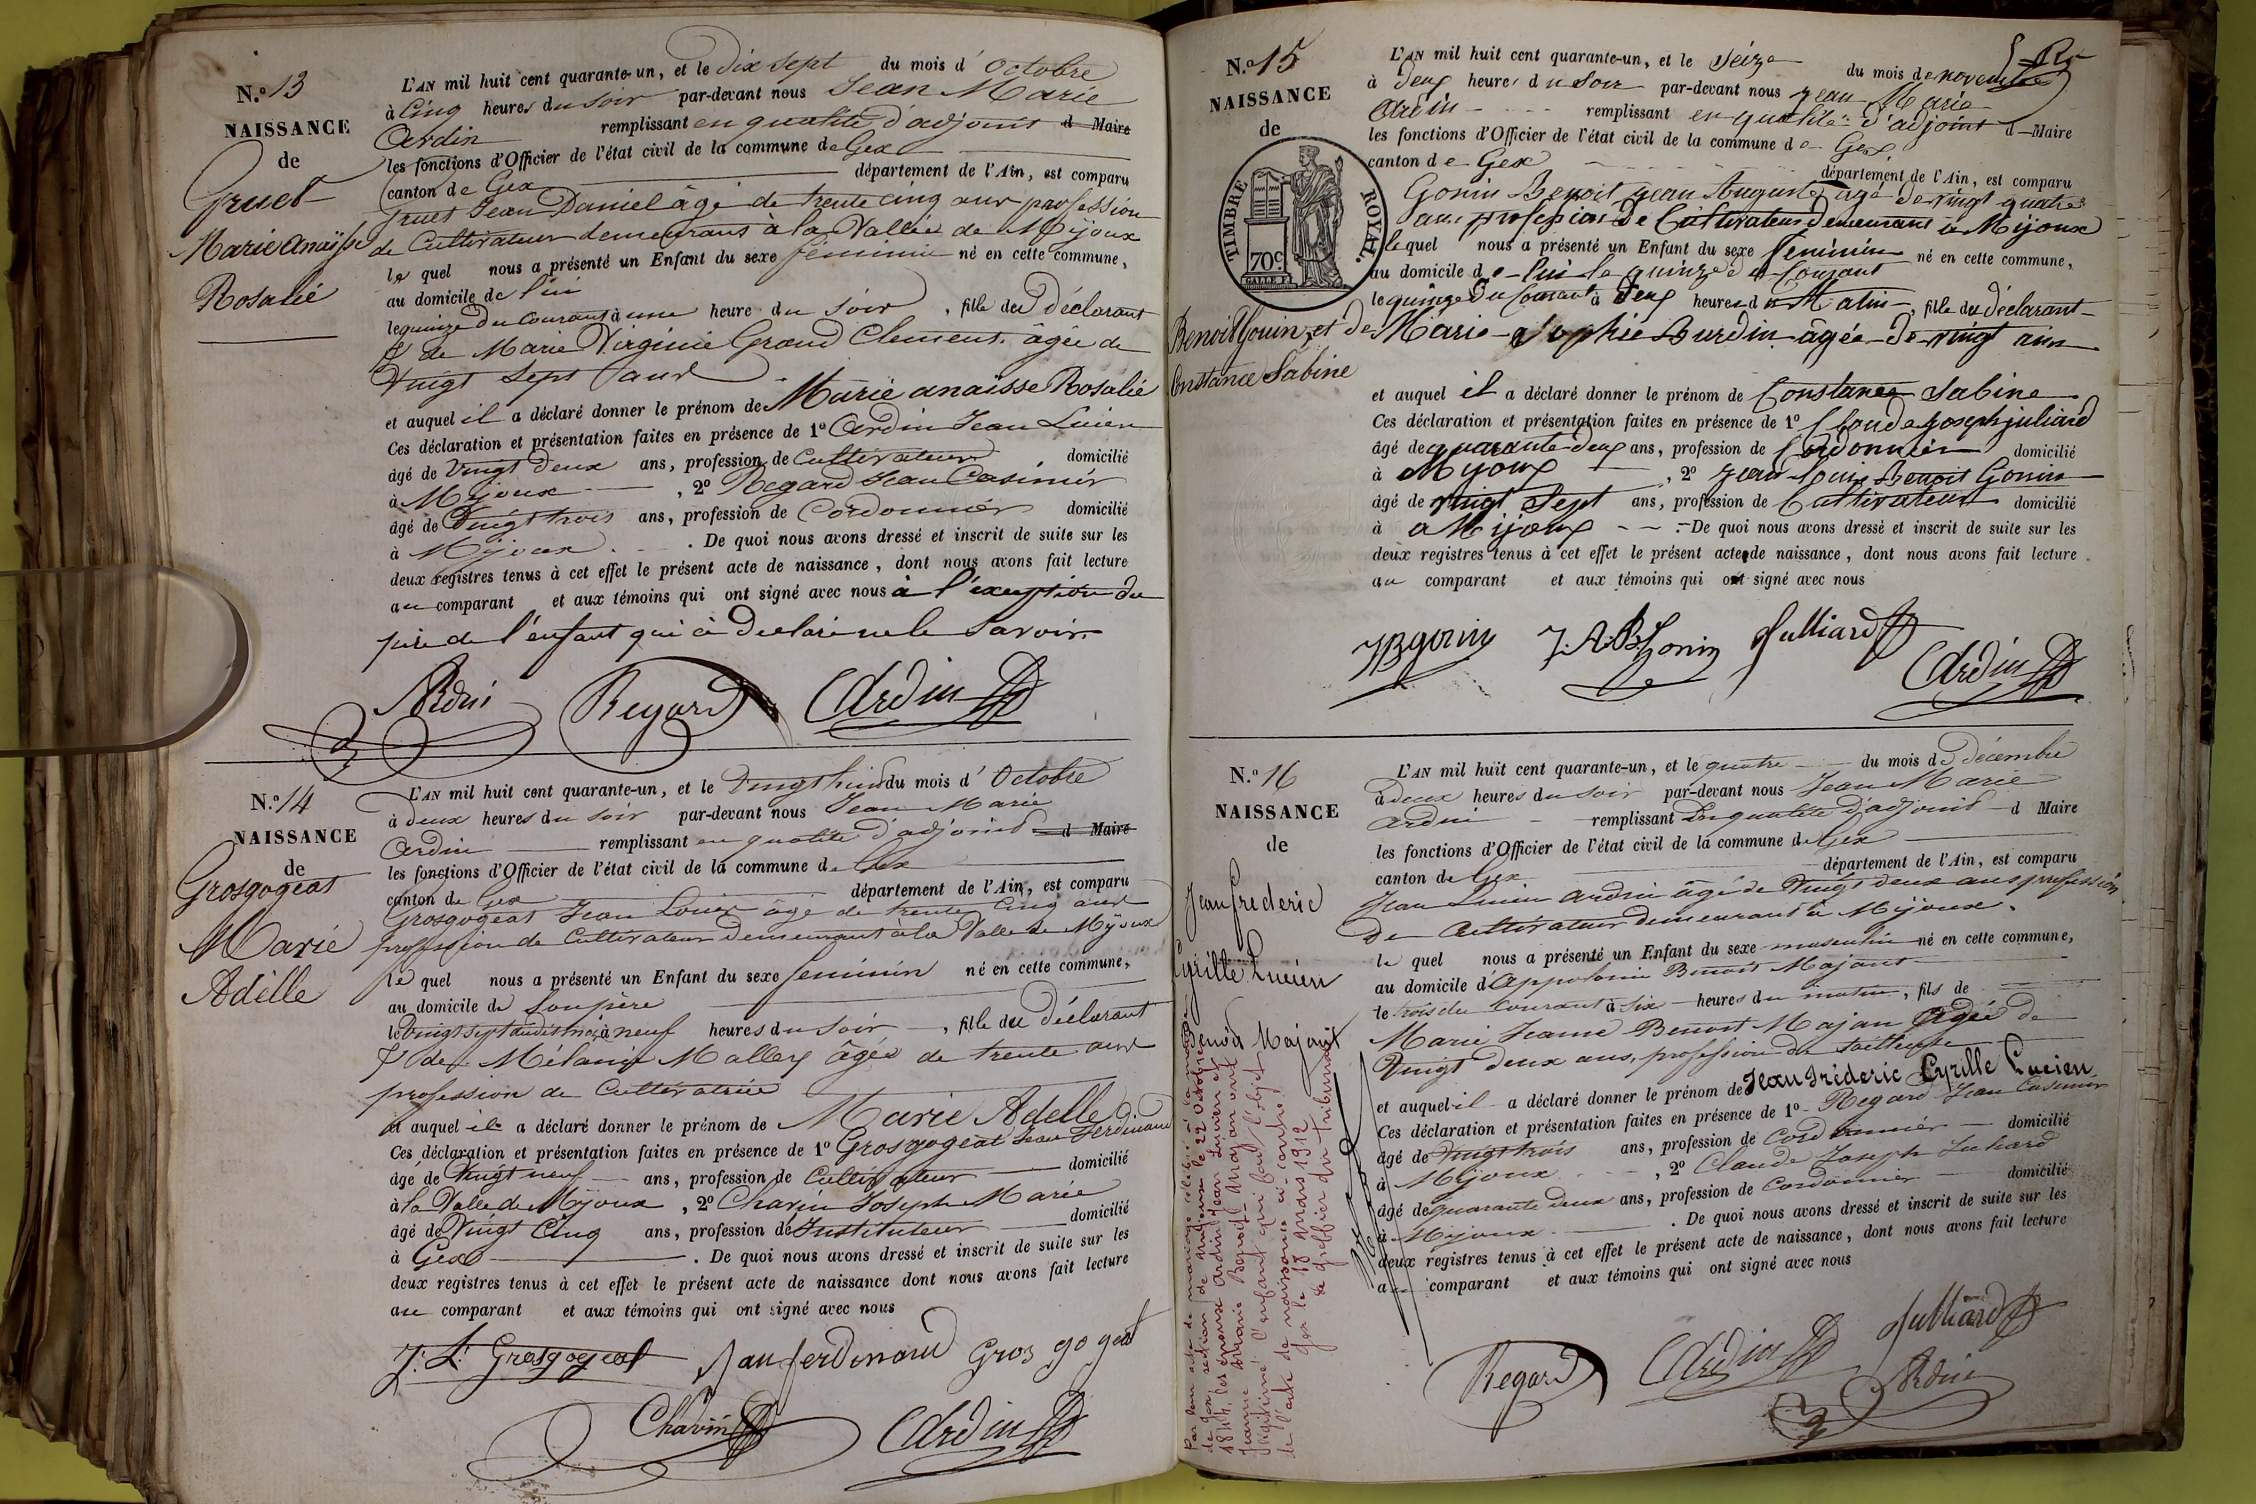 N.o 13
NAISSANCE
de
Gruet
Marie Anaïsse
Rosalie
L'AN mil huit cent quarante-un, et le dix sept du mois d'Octobre
à Cinq heures du soir par-devant nous Jean Marie
Ardin remplissant en qualité d'adjoint d Maire
les fonctions d'Officier de l'état civil de la commune de Gex
canton de Gex département de l'Ain, est comparu
Gruet Jean Daniel âgé de trente cinq ans profession
de Cultivateur demeurant à la Vallée de Mijoux
le quel nous a présenté un Enfant du sexe féminin né en cette commune,
au domicile de lui
le quinze du Courant à une heure du soir, fille du déclarant
& de Marie Virginie Grand Clement. âgée de
Vingt Sept ans
et auquel il a déclaré donner le prénom de Marie anaïsse Rosalie
Ces déclaration et présentation faites en présence de 1o Ardin Jean Lucien
âgé de Vingt deux ans, profession de Cultivateur domicilié
à Mijoux, 2o Regard Jean Casimir
âgé de Vingt trois ans, profession de Cordonnier domicilié
à Mijoux. De quoi nous avons dressé et inscrit de suite sur les
deux registres tenus à cet effet le présent acte de naissance, dont nous avons fait lecture
au comparant et aux témoins qui ont signé avec nous à l'exception du
père de l'enfant qui a déclaré ne le savoir.
Ardin Regard Ardin
N.o 14
NAISSANCE
de
Grosgogeat
Marie
Adèlle
L'AN mil huit cent quarante-un, et le Vingt huit du mois d'Octobre
à deux heures du soir par-devant nous Jean Marie
Ardin remplissant en qualité d'adjoint d Maire
les fonctions d'Officier de l'état civil de la commune de Gex
canton de Gex département de l'Ain, est comparu
Grosgogeat Jean Louis âgé de trente Cinq ans
profession de Cultivateur demeurant à la Valle de Mijoux
le quel nous a présenté un Enfant du sexe feminin né en cette commune,
au domicile de Son père
le Vingt sept dudit mois à neuf heures du soir, fille du déclarant
& de Mélanie Malley âgée de trente ans
profession de Cultivatrice
et auquel il a déclaré donner le prénom de Marie Adelle
Ces déclaration et présentation faites en présence de 1o Grosgogeat Jean Ferdinand
âgé de Vingt neuf ans, profession de Cultivateur domicilié
à la Valle de Mijoux, 2o Chavin Joseph Marie
âgé de Vingt Cinq ans, profession de Instituteur domicilié
à Gex. De quoi nous avons dressé et inscrit de suite sur les
deux registres tenus à cet effet le présent acte de naissance dont nous avons fait lecture
au comparant et aux témoins qui ont signé avec nous
J. L. Grosgogeat Jan ferdinand Gros go geat
Chavin Ardin
N.o 15
NAISSANCE
de
TIMBRE ROYAL.
70c
Benoit Gonin
Constance Sabine
L'AN mil huit cent quarante-un, et le Seize du mois de novembre
à deux heures du Soir par-devant nous Jean Marie
Ardin remplissant en qualité d'adjoint d Maire
les fonctions d'Officier de l'état civil de la commune de Gex
canton de Gex département de l'Ain, est comparu
Gonin Benoit Jean Auguste agé de vingt quatre
ans profession de Cultivateur demeurant à Mijoux
le quel nous a présenté un Enfant du sexe feminin né en cette commune,
au domicile de lui le quinze du Courant
le quinze du Courant à deux heures du Matin, fille du déclarant
et de Marie Sophie Burdin âgée de vingt ans
et auquel il a déclaré donner le prénom de Constance Sabine
Ces déclaration et présentation faites en présence de 1o Claude Joseph juliard
âgé de quarante deux ans, profession de Cordonnier domicilié
à Mijoux, 2o Jean louis Benoit Gonin
âgé de vingt Sept ans, profession de Cultivateur domicilié
à a Mijoux. De quoi nous avons dressé et inscrit de suite sur les
deux registres tenus à cet effet le présent acte de naissance, dont nous avons fait lecture
au comparant et aux témoins qui ont signé avec nous
J B gonin J. A. B. Gonin Julliard
Ardin
N.o 16
NAISSANCE
de
Jean frederic
Cyrille Lucien
Benoit Majant
L'AN mil huit cent quarante-un, et le quatre du mois de décembre
à deux heures du soir par-devant nous Jean Marie
Ardin remplissant En qualité d'adjoint d Maire
les fonctions d'Officier de l'état civil de la commune de Gex
canton de Gex département de l'Ain, est comparu
Jean Lucien Ardin âgé de Vingt deux ans profession
de Cultivateur demeurant à Mijoux.
le quel nous a présenté un Enfant du sexe masculin né en cette commune,
au domicile d'Appolonie Benoit Majant
le trois du Courant à six heures du matin, fils de
Marie Jeanne Benoit Majan Agée de
Vingt deux ans, profession de tailleuse
et auquel il a déclaré donner le prénom de Jean fréderic Cyrille Lucien
Ces déclaration et présentation faites en présence de 1o Regard Jean Casimir
âgé de Vingt trois ans, profession de Cordonnier
à Mijoux, 2o Claude Joseph Juliard
âgé de quarante deux ans, profession de Cordonnier domicilié
à Mijoux. De quoi nous avons dressé et inscrit de suite sur les
deux registres tenus à cet effet le présent acte de naissance, dont nous avons fait lecture
au comparant et aux témoins qui ont signé avec nous
Regard Ardin Julliard
Ardin
Par leur acte de mariage célébré à la mairie
de Gex, section de Mijoux le 22 Octobre
1844, les époux Ardin Jean Lucien et
Jeanne Marie Benoit Majan ont
légitimé l'enfant qui fait l'objet
de l'acte de naissance ci-contre.
Gex le 18 mars 1912
Le greffier du tribunal